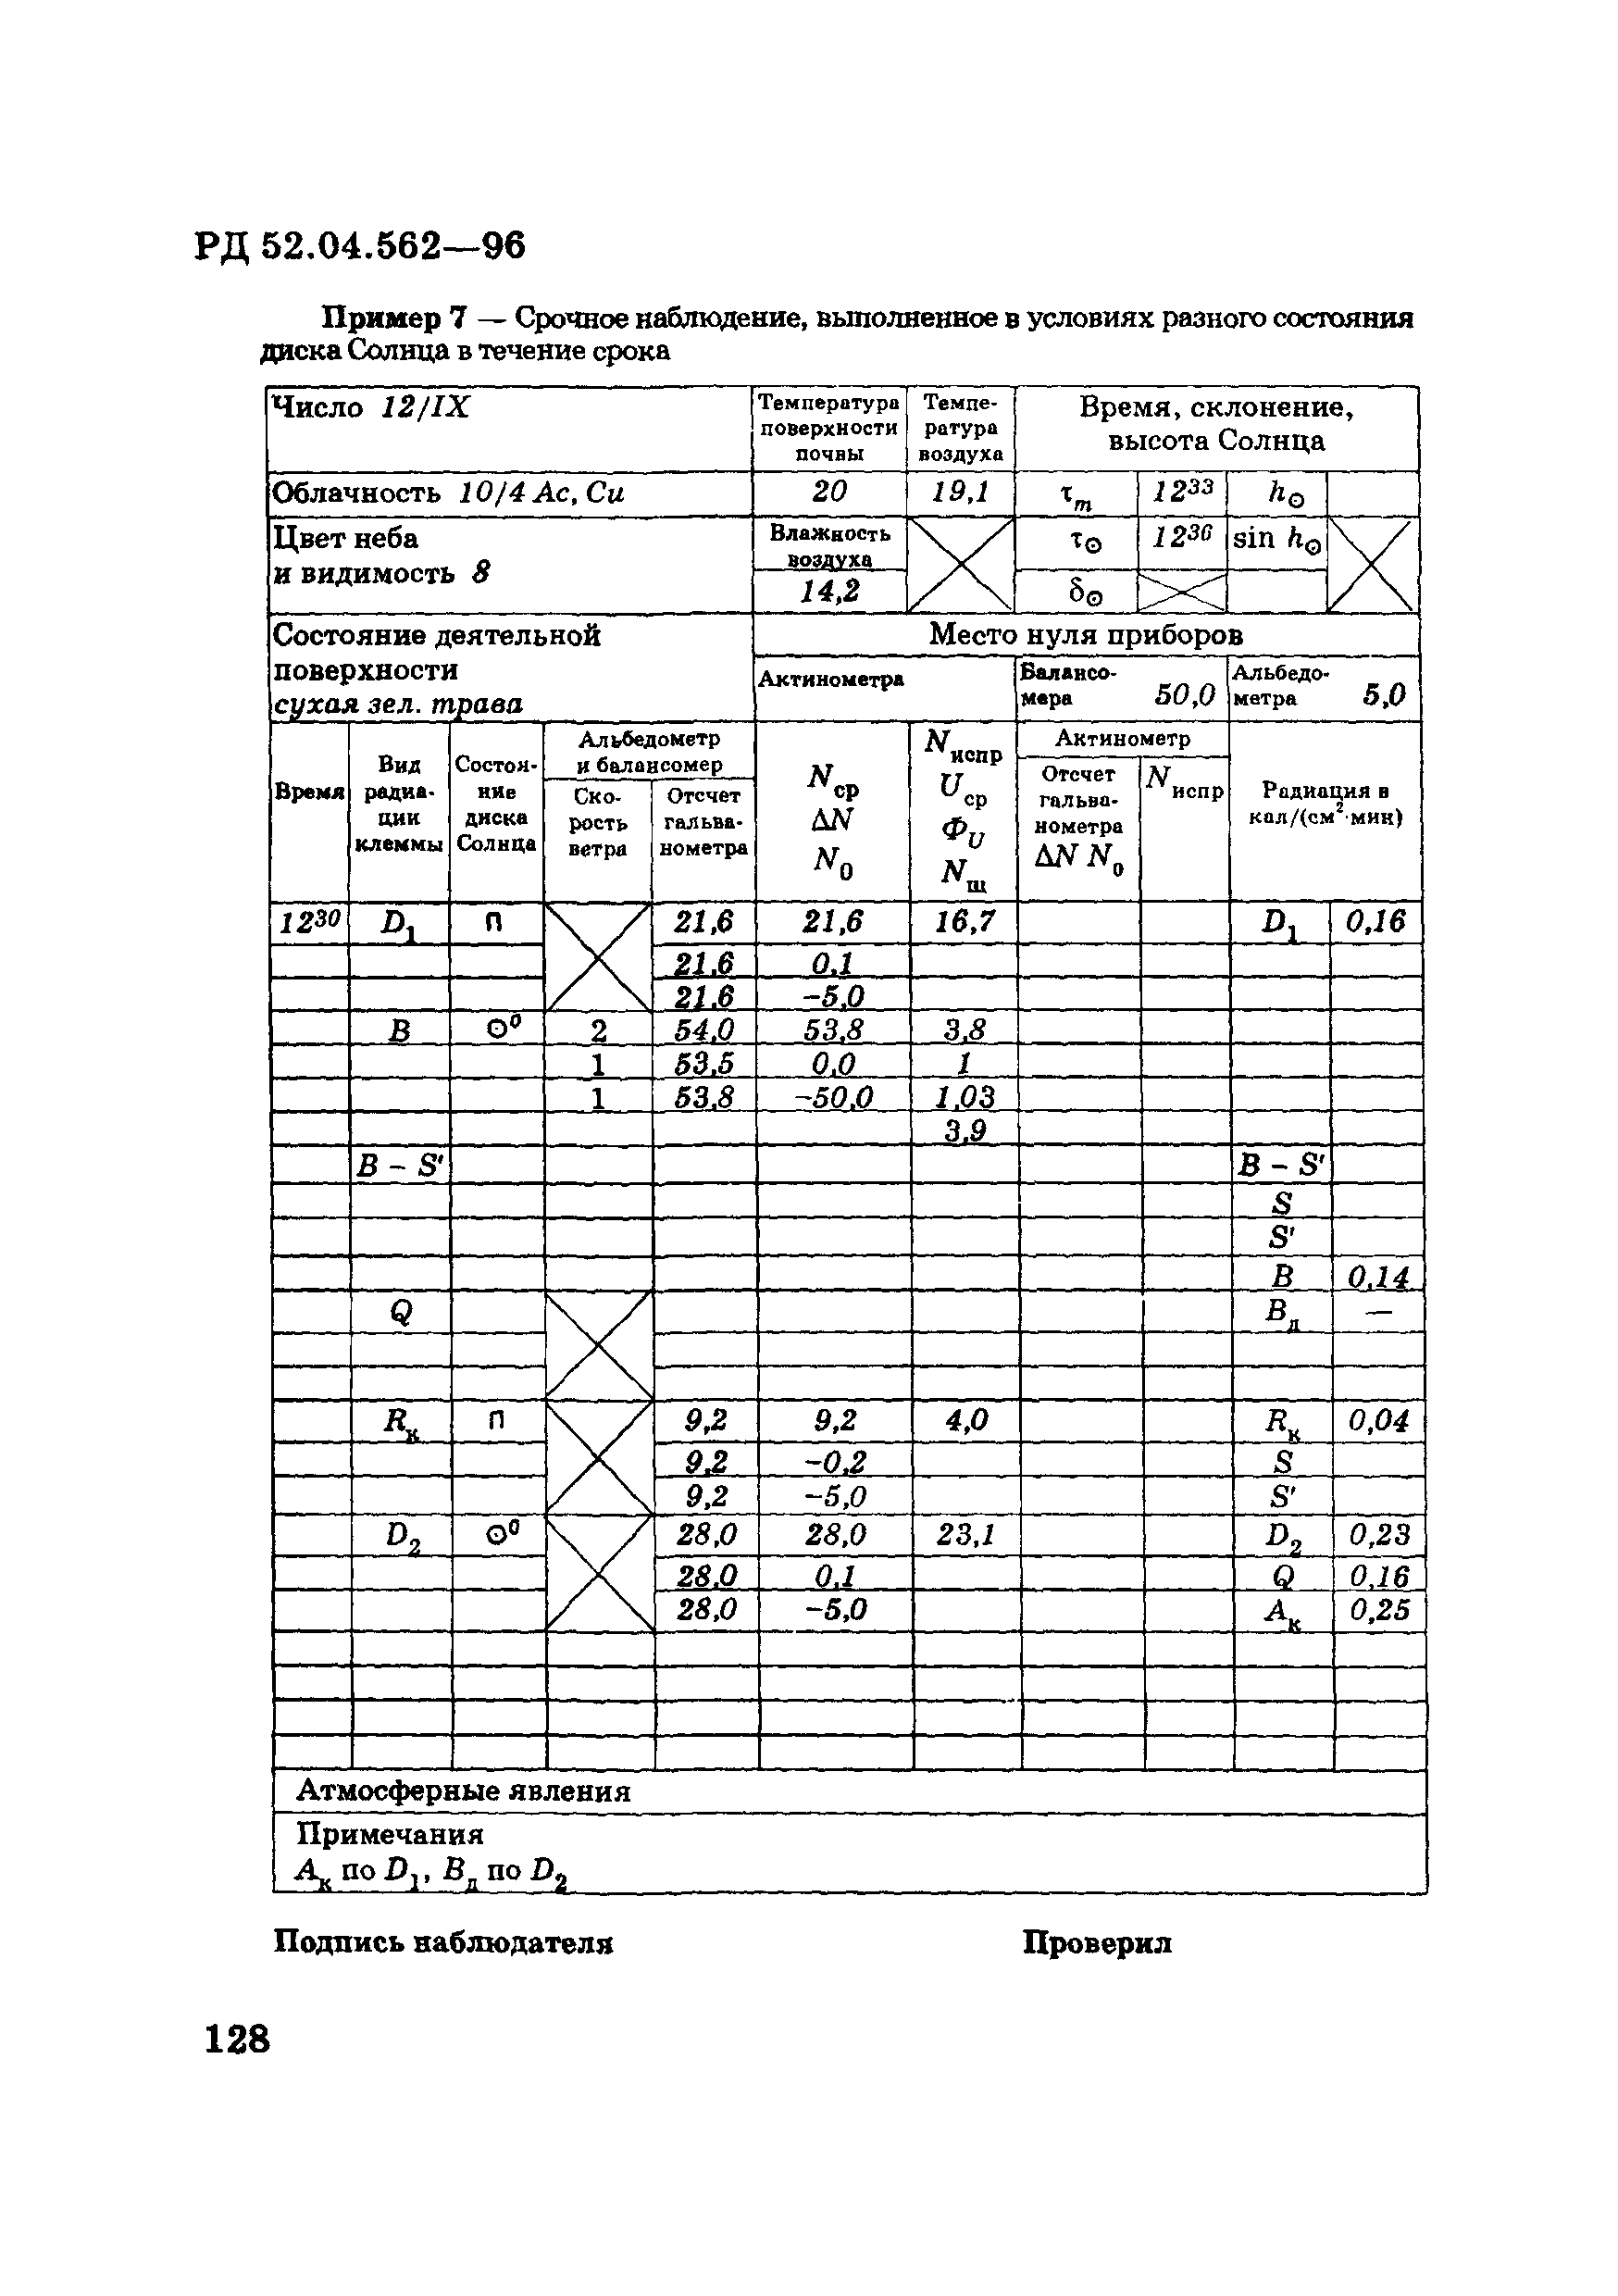 РД 52.04.562—96
Пример 7 — Срочное наблюдение, выполненное в условиях разного состояния
диска Солнца в течение срока
Число 12/IX
Температура поверхности почвы
Темпе- ратура воздуха
Время, склонение, высота Солнца
Облачность 10/4 Ac, Cu 20 19,1 τm 12³³ h⊙
Цвет неба и видимость 8
Влажность воздуха
14,2
τ⊙ 12³⁶ sin h⊙
δ⊙
Состояние деятельной поверхности сухая зел. трава
Место нуля приборов
Актинометра
Балансо- мера 50,0
Альбедо- метра 5,0
Время
Вид радиа- ции клеммы
Состоя- ние диска Солнца
Альбедометр и балансомер
Ско- рость ветра
Отсчет гальва- нометра
Nср ΔN N₀
Nиспр Uср ΦU Nщ
Актинометр
Отсчет гальва- нометра ΔN N₀
Nиспр
Радиация в кал/(см²·мин)
12³⁰ D₁ П 21,6 21,6 16,7 D₁ 0,16
21,6 0,1
21,6 -5,0
B ⊙⁰ 2 54,0 53,8 3,8
1 53,5 0,0 1
1 53,8 -50,0 1,03
3,9
B - S' B - S'
S
S'
B 0,14
Q Bд —
Rк П 9,2 9,2 4,0 Rк 0,04
9,2 -0,2 S
9,2 -5,0 S'
D₂ ⊙⁰ 28,0 28,0 23,1 D₂ 0,23
28,0 0,1 Q 0,16
28,0 -5,0 Aк 0,25
Атмосферные явления
Примечания
Aк по D₁, Bд по D₂
Подпись наблюдателя Проверил
128